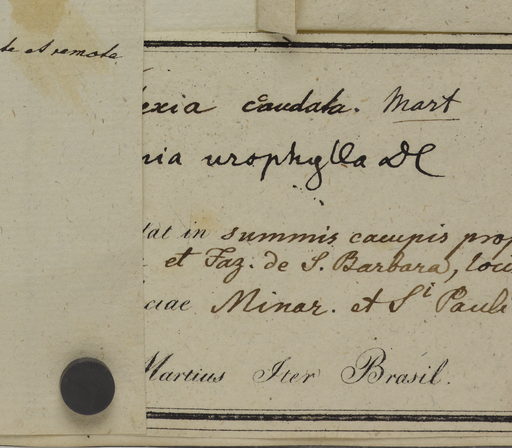 te et remote
exia caudata. Mart
nia urophylla DC
tat in summis campis prop
et Faz. de S. Barbara, locis
ciae Minar. et Sti Pauli
Martius Iter Brasil.